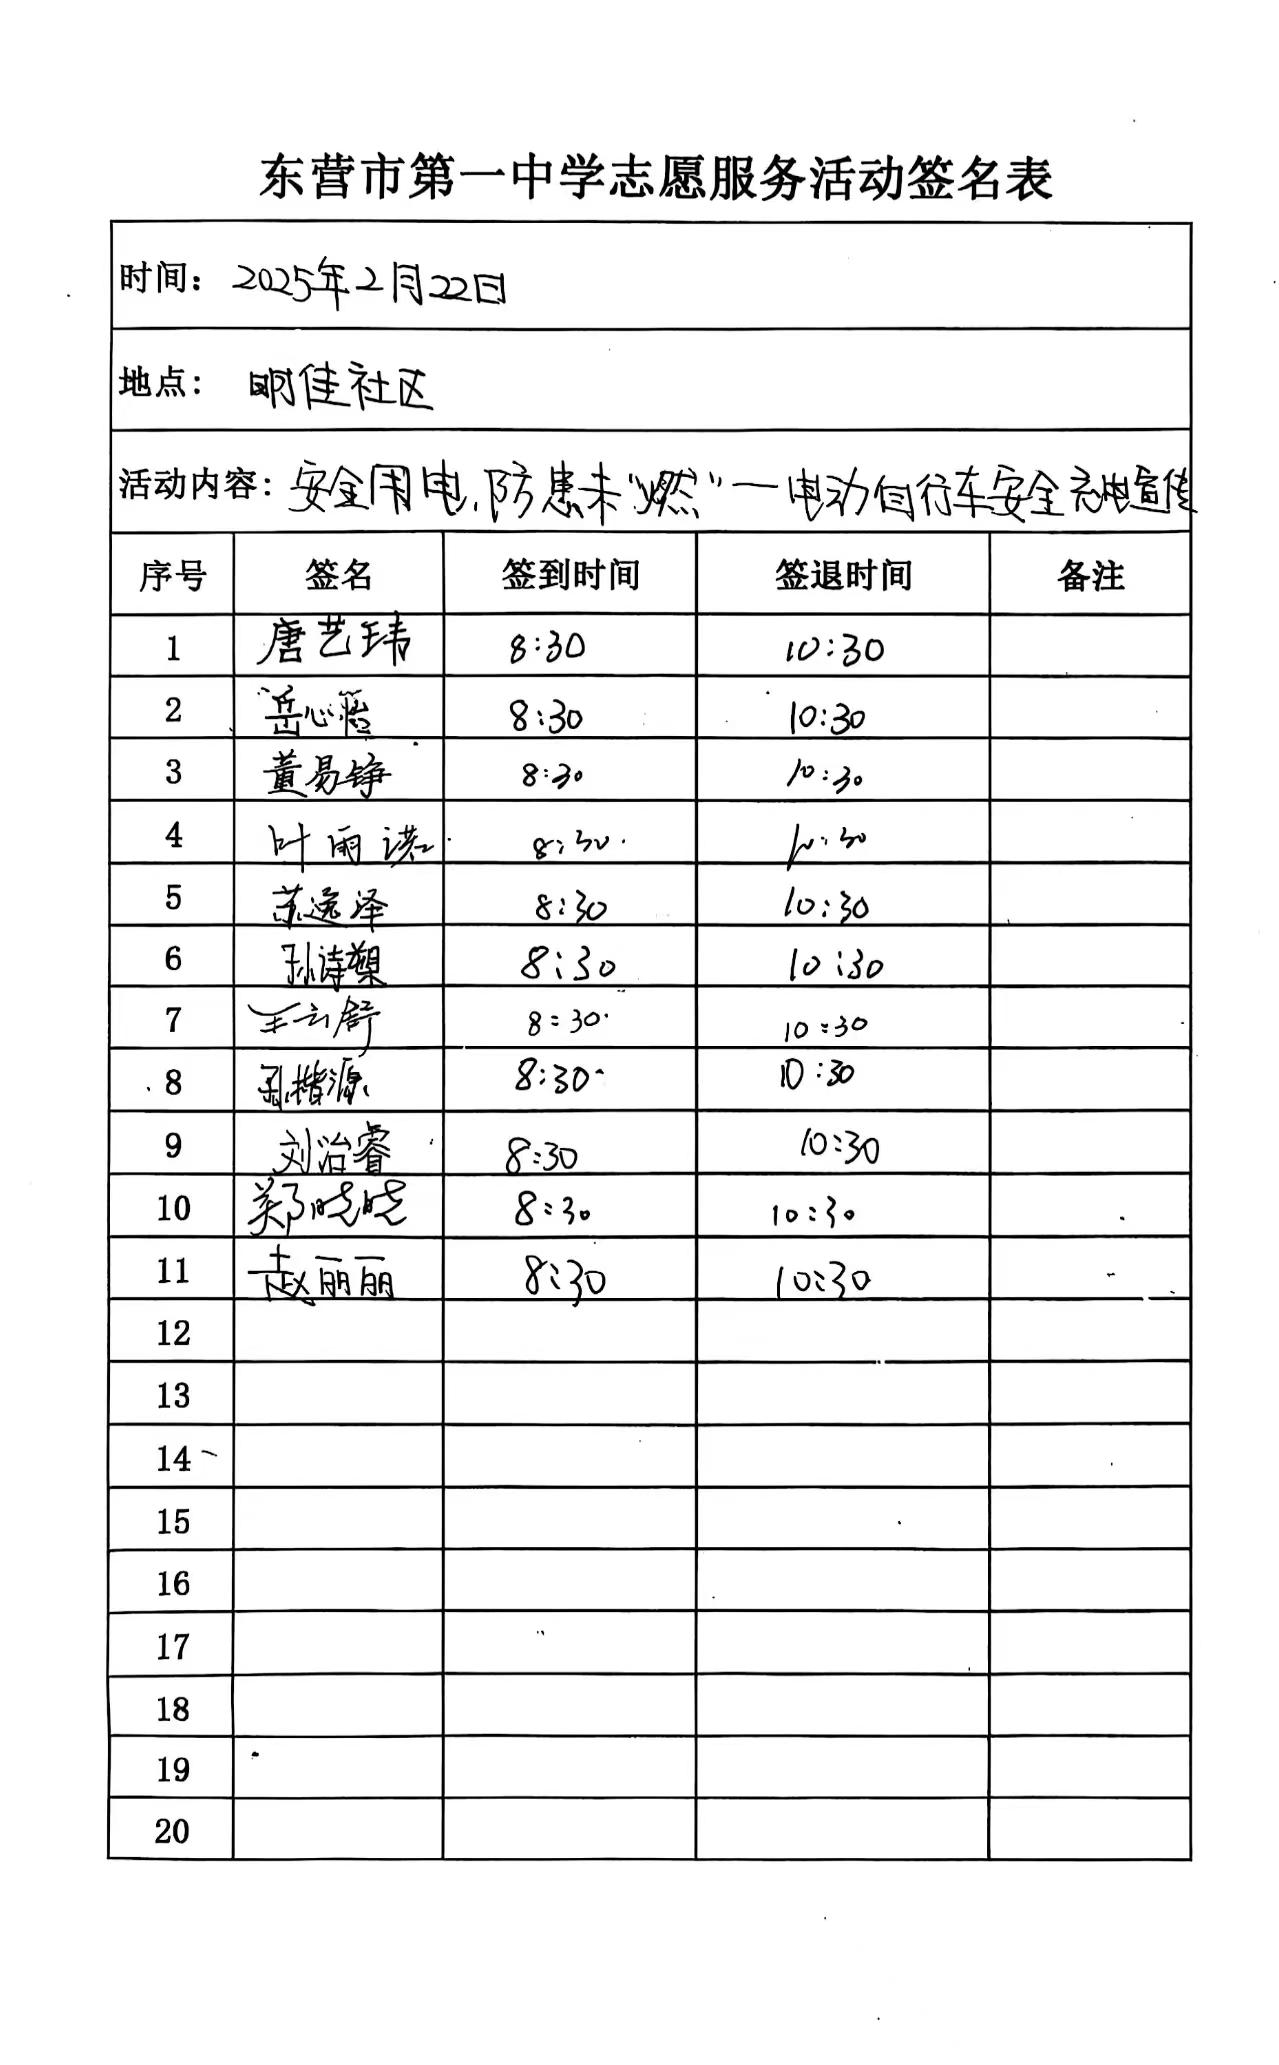 东营市第一中学志愿服务活动签名表
时间：2025年2月22日
地点：明佳社区
活动内容：安全用电、防患未“燃”—电动自行车安全充电宣传
序号 签名 签到时间 签退时间 备注
1 唐艺玮 8:30 10:30
2 岳心 8:30 10:30
3 董易铮 8:30 10:30
4 叶雨诺 8:30 10:30
5 苏逸泽 8:30 10:30
6 孙诗 8:30 10:30
7 王云舒 8:30 10:30
8 源 8:30 10:30
9 刘治睿 8:30 10:30
10 郑晓晓 8:30 10:30
11 赵丽丽 8:30 10:30
12
13
14
15
16
17
18
19
20